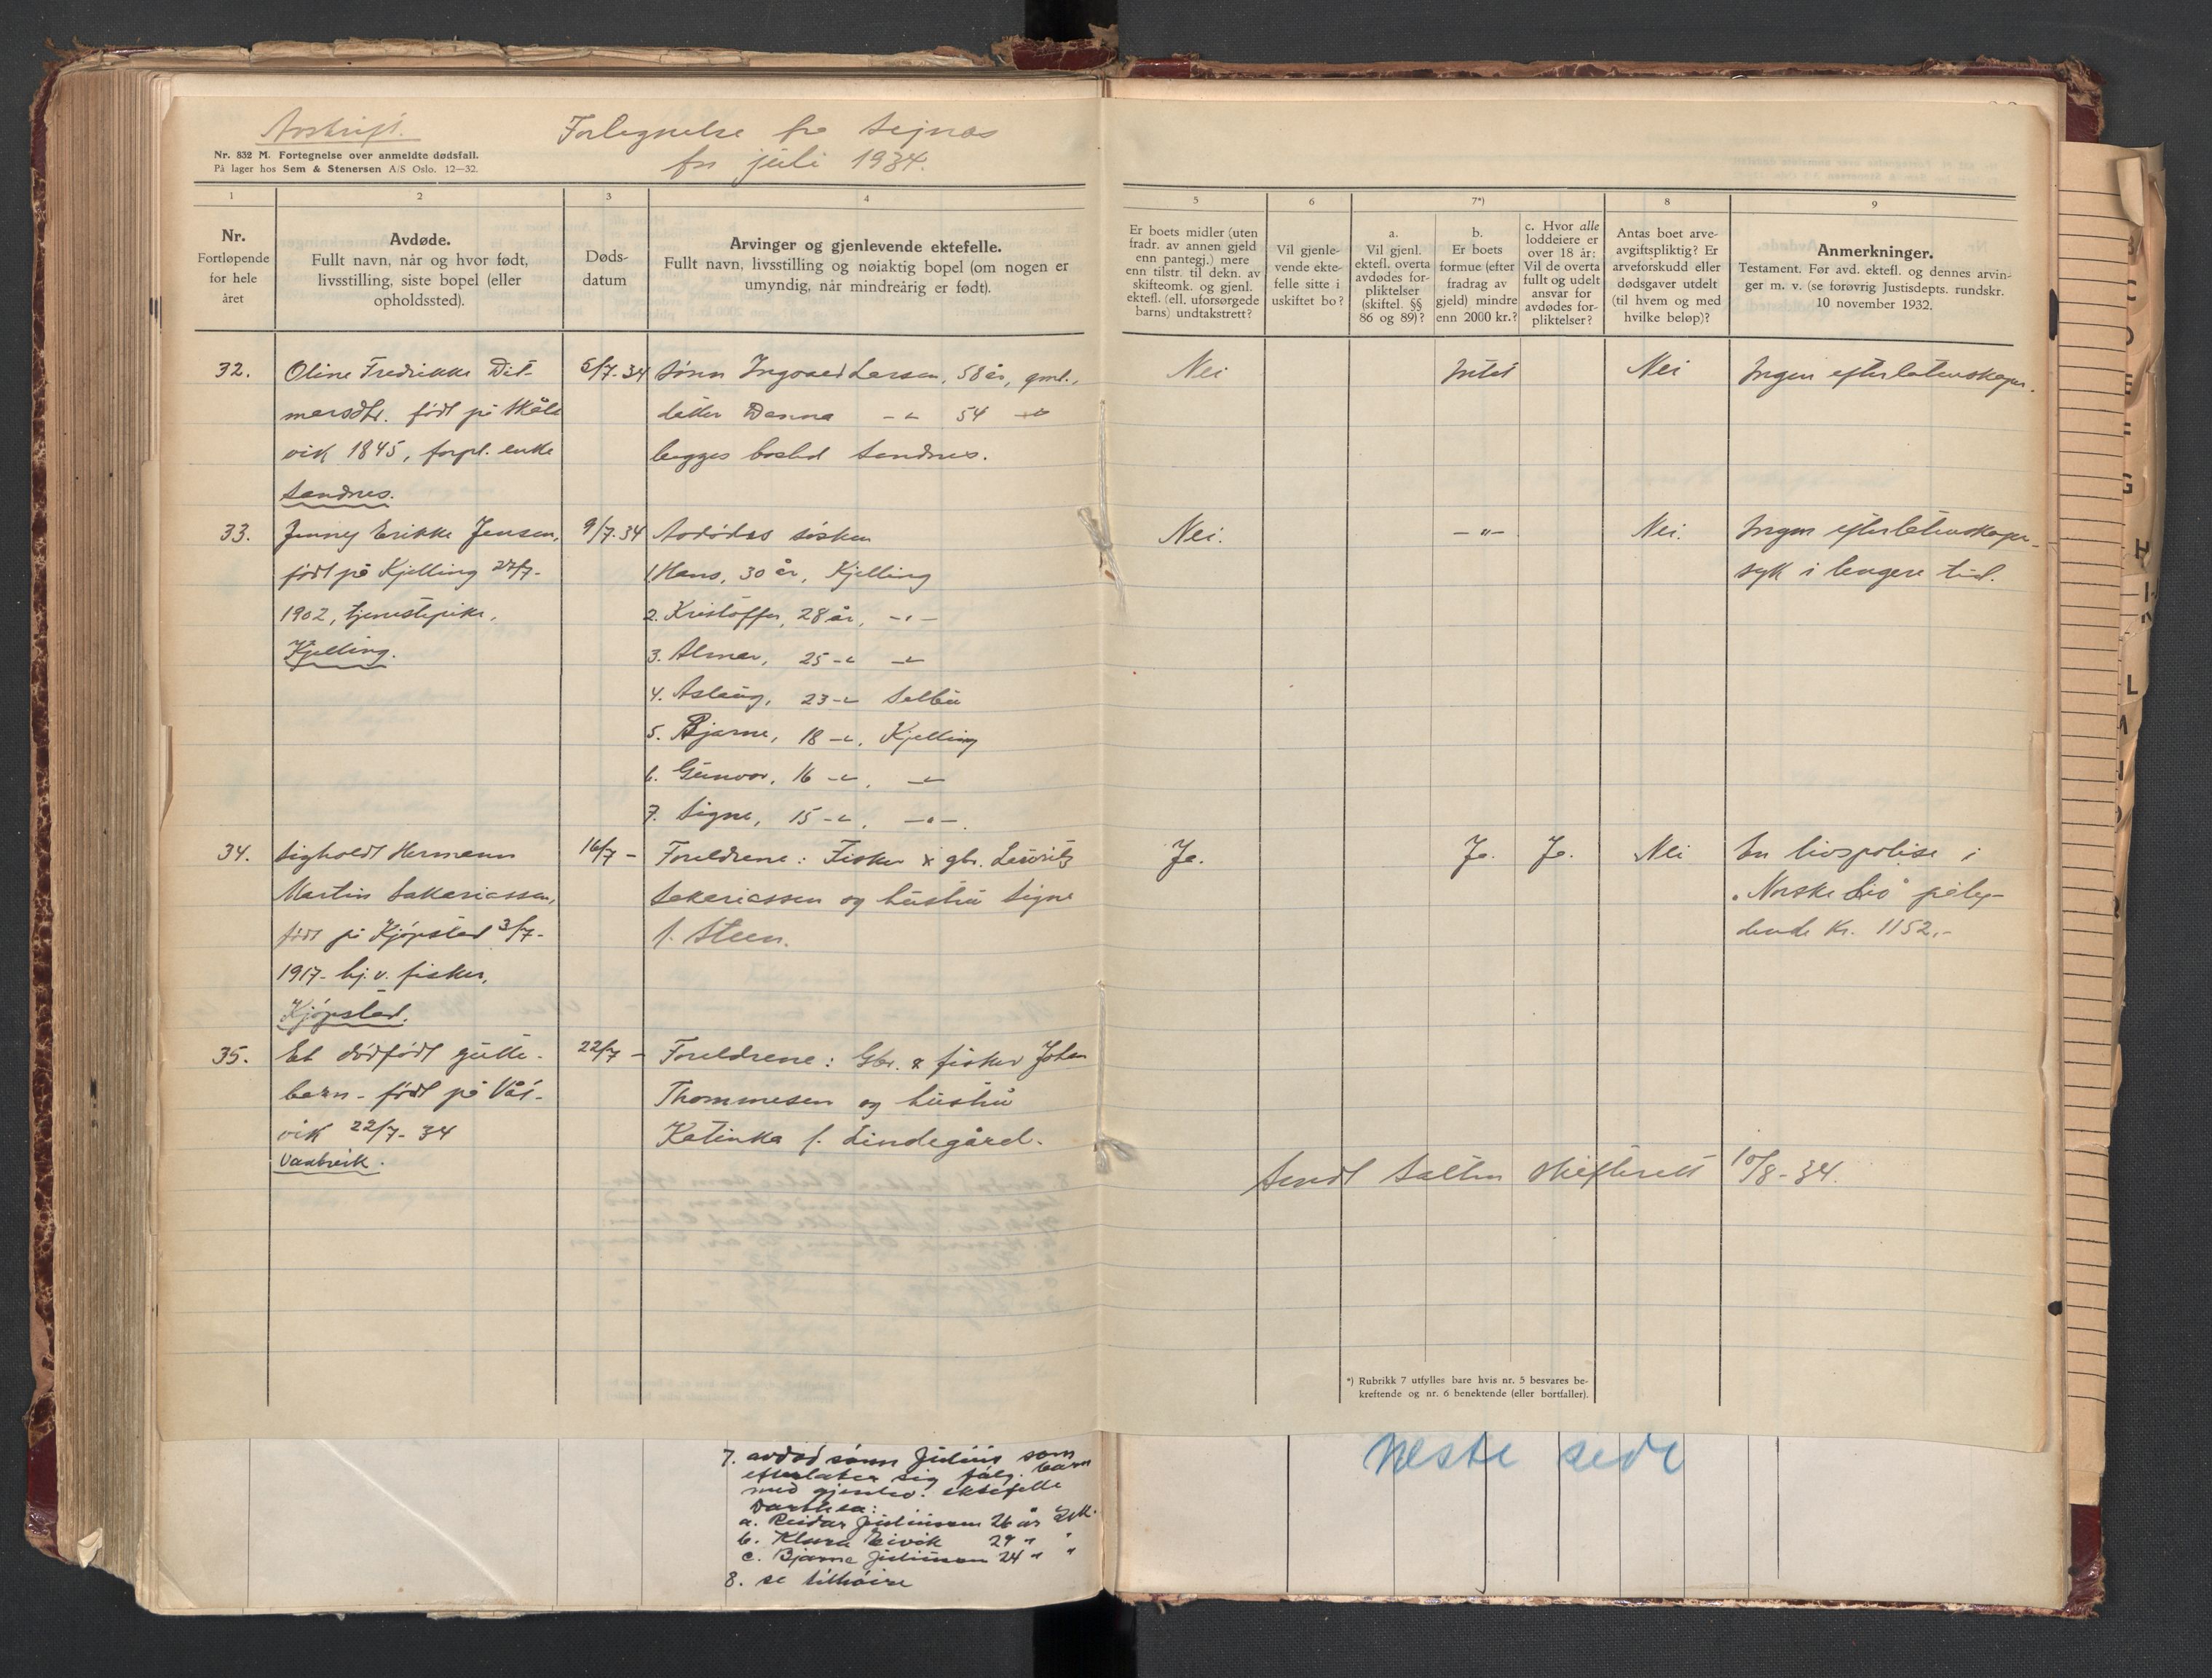 Avskrift.
Fortegnelse fra
for juli 1934.
Nr. 832 M. Fortegnelse over anmeldte dødsfall.
På lager hos Sem & Stenersen A/S Oslo. 12—32.
1
2
3
4
5
6
7*)
8
9
Nr.
Fortløpende
for hele
året
Avdøde.
Fullt navn, når og hvor født,
livsstilling, siste bopel (eller
opholdssted).
Døds-
datum
Arvinger og gjenlevende ektefelle.
Fullt navn, livsstilling og nøiaktig bopel (om nogen er
umyndig, når mindreårig er født).
Er boets midler (uten
fradr. av annen gjeld
enn pantegj.) mere
enn tilstr. til dekn. av
skifteomk. og gjenl.
ektefl. (ell. uforsørgede
barns) undtakstrett?
Vil gjenle-
vende ekte-
felle sitte i
uskiftet bo?
a.
Vil gjenl.
ektefl. overta
avdødes for-
pliktelser
(skiftel. §§
86 og 89)?
b.
Er boets
formue (efter
fradrag av
gjeld) mindre
enn 2000 kr.?
c. Hvor alle
loddeiere er
over 18 år:
Vil de overta
fullt og udelt
ansvar for
avdødes for-
pliktelser?
Antas boet arve-
avgiftspliktig? Er
arveforskudd eller
dødsgaver utdelt
(til hvem og med
hvilke beløp)?
Anmerkninger.
Testament. Før avd. ektefl. og dennes arvin-
ger m. v. (se forøvrig Justisdepts. rundskr.
10 november 1932.
32.
Oline Fredrikke Dit-
marsdtr. født på Skåls
vik 1845, forpl. enke
Sandnes.
5/7-34
Sønn Ingvard Larsen, 58 år, gml.,
datter Danna -"- 54 -"-
begges bosted Sandnes.
Nei
Intet
Nei
Ingen efterlatenskaper.
33.
Jenny Erikke Jensen,
født på Kjelling 27/7-
1902, tjenestepike,
Kjelling.
9/7-34
Avdødes søsken
1. Hans, 30 år, Kjelling
2. Kristoffer, 28 år, -"-
3. Almar, 25 -"- -"-
4. Aslaug, 23 -"- Selbu
5. Bjarne, 18 -"-, Kjelling
6. Gunvor, 16 -"-, -"-
7. Signe, 15 -"-, -"-.
Nei.
-"-
Nei.
Ingen efterlatenskaper-
syk i lengere tid.
34.
Sigholdt Hermann
Martin Sakariassen,
født på Kjøpstad 3/7-
1917- hj. v. fisker,
Kjøpstad.
16/7 -
Foreldrene: Fisker & gbr. Lauritz
Sakariassen og hustru Signe
f. Steen.
Ja.
Ja.
Ja.
Nei
En livspolise i
"Norske Liv" pålyd-
dende Kr. 1152,-
35.
Et dødfødt gutte-
barn - født på Våt-
vik 22/7-34
Vaatvik.
22/7 -
Foreldrene: Gbr. & fisker Johan
Thommesen og hustru
Katinka f. Lindegård.
Sendt Salten Skifterett 10/8-34.
*) Rubrikk 7 utfylles bare hvis nr. 5 besvares be-
kreftende og nr. 6 benektende (eller bortfaller).
7. avdød sønn Julius som
efterlater sig følg. barn
med gjenlev. ektefelle
Darthea:
a. Reidar Juliussen 26 år
b. Klara 29 " "
c. Bjarne Juliussen 24 " "
8. se tilhøire
Neste side